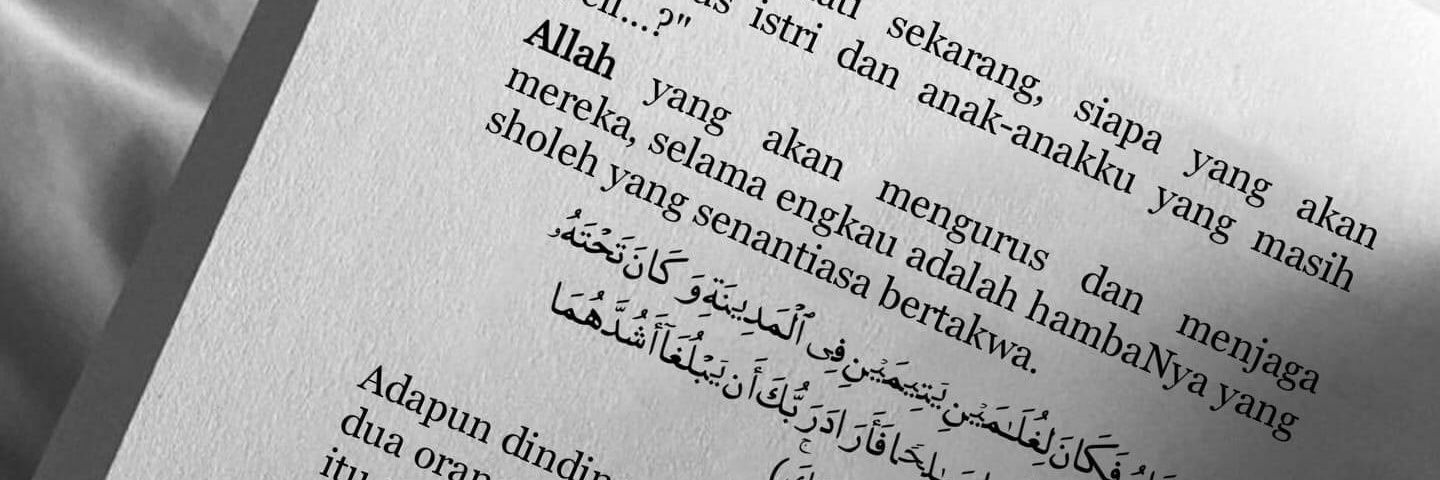 sekarang, siapa yang akan
istri dan anak-anakku yang masih
...?"
Allah yang akan mengurus dan menjaga
mereka, selama engkau adalah hambaNya yang
sholeh yang senantiasa bertakwa.
فَكَانَ لِغُلَـٰمَيْنِ يَتِيمَيْنِ فِى ٱلْمَدِينَةِ وَكَانَ تَحْتَهُۥ
فَأَرَادَ رَبُّكَ أَن يَبْلُغَآ أَشُدَّهُمَا
Adapun
dua
itu